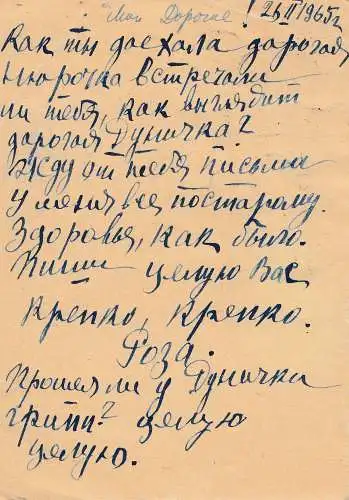 Мои Дорогие! 25 II 1965 г.
Как ты доехала дорогая
Нюрочка встречали
ли тебя, как выглядит
дорогая Дуничка?
Жду от тебя письма
у меня все постарому.
Здоровье, как было.
Пиши целую Вас
Крепко, Крепко.
Роза.
Прошел ли у Дунички
грипп? целую
целую.